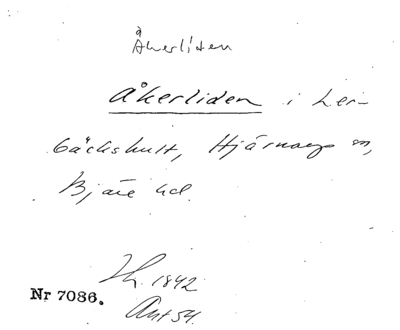 Åkerliden
Åkerliden i Ler-
bäckshult, Hjärnarps sn,
Bjäre hd.
Lh. 1842
Nr 7086.
Ant 54.